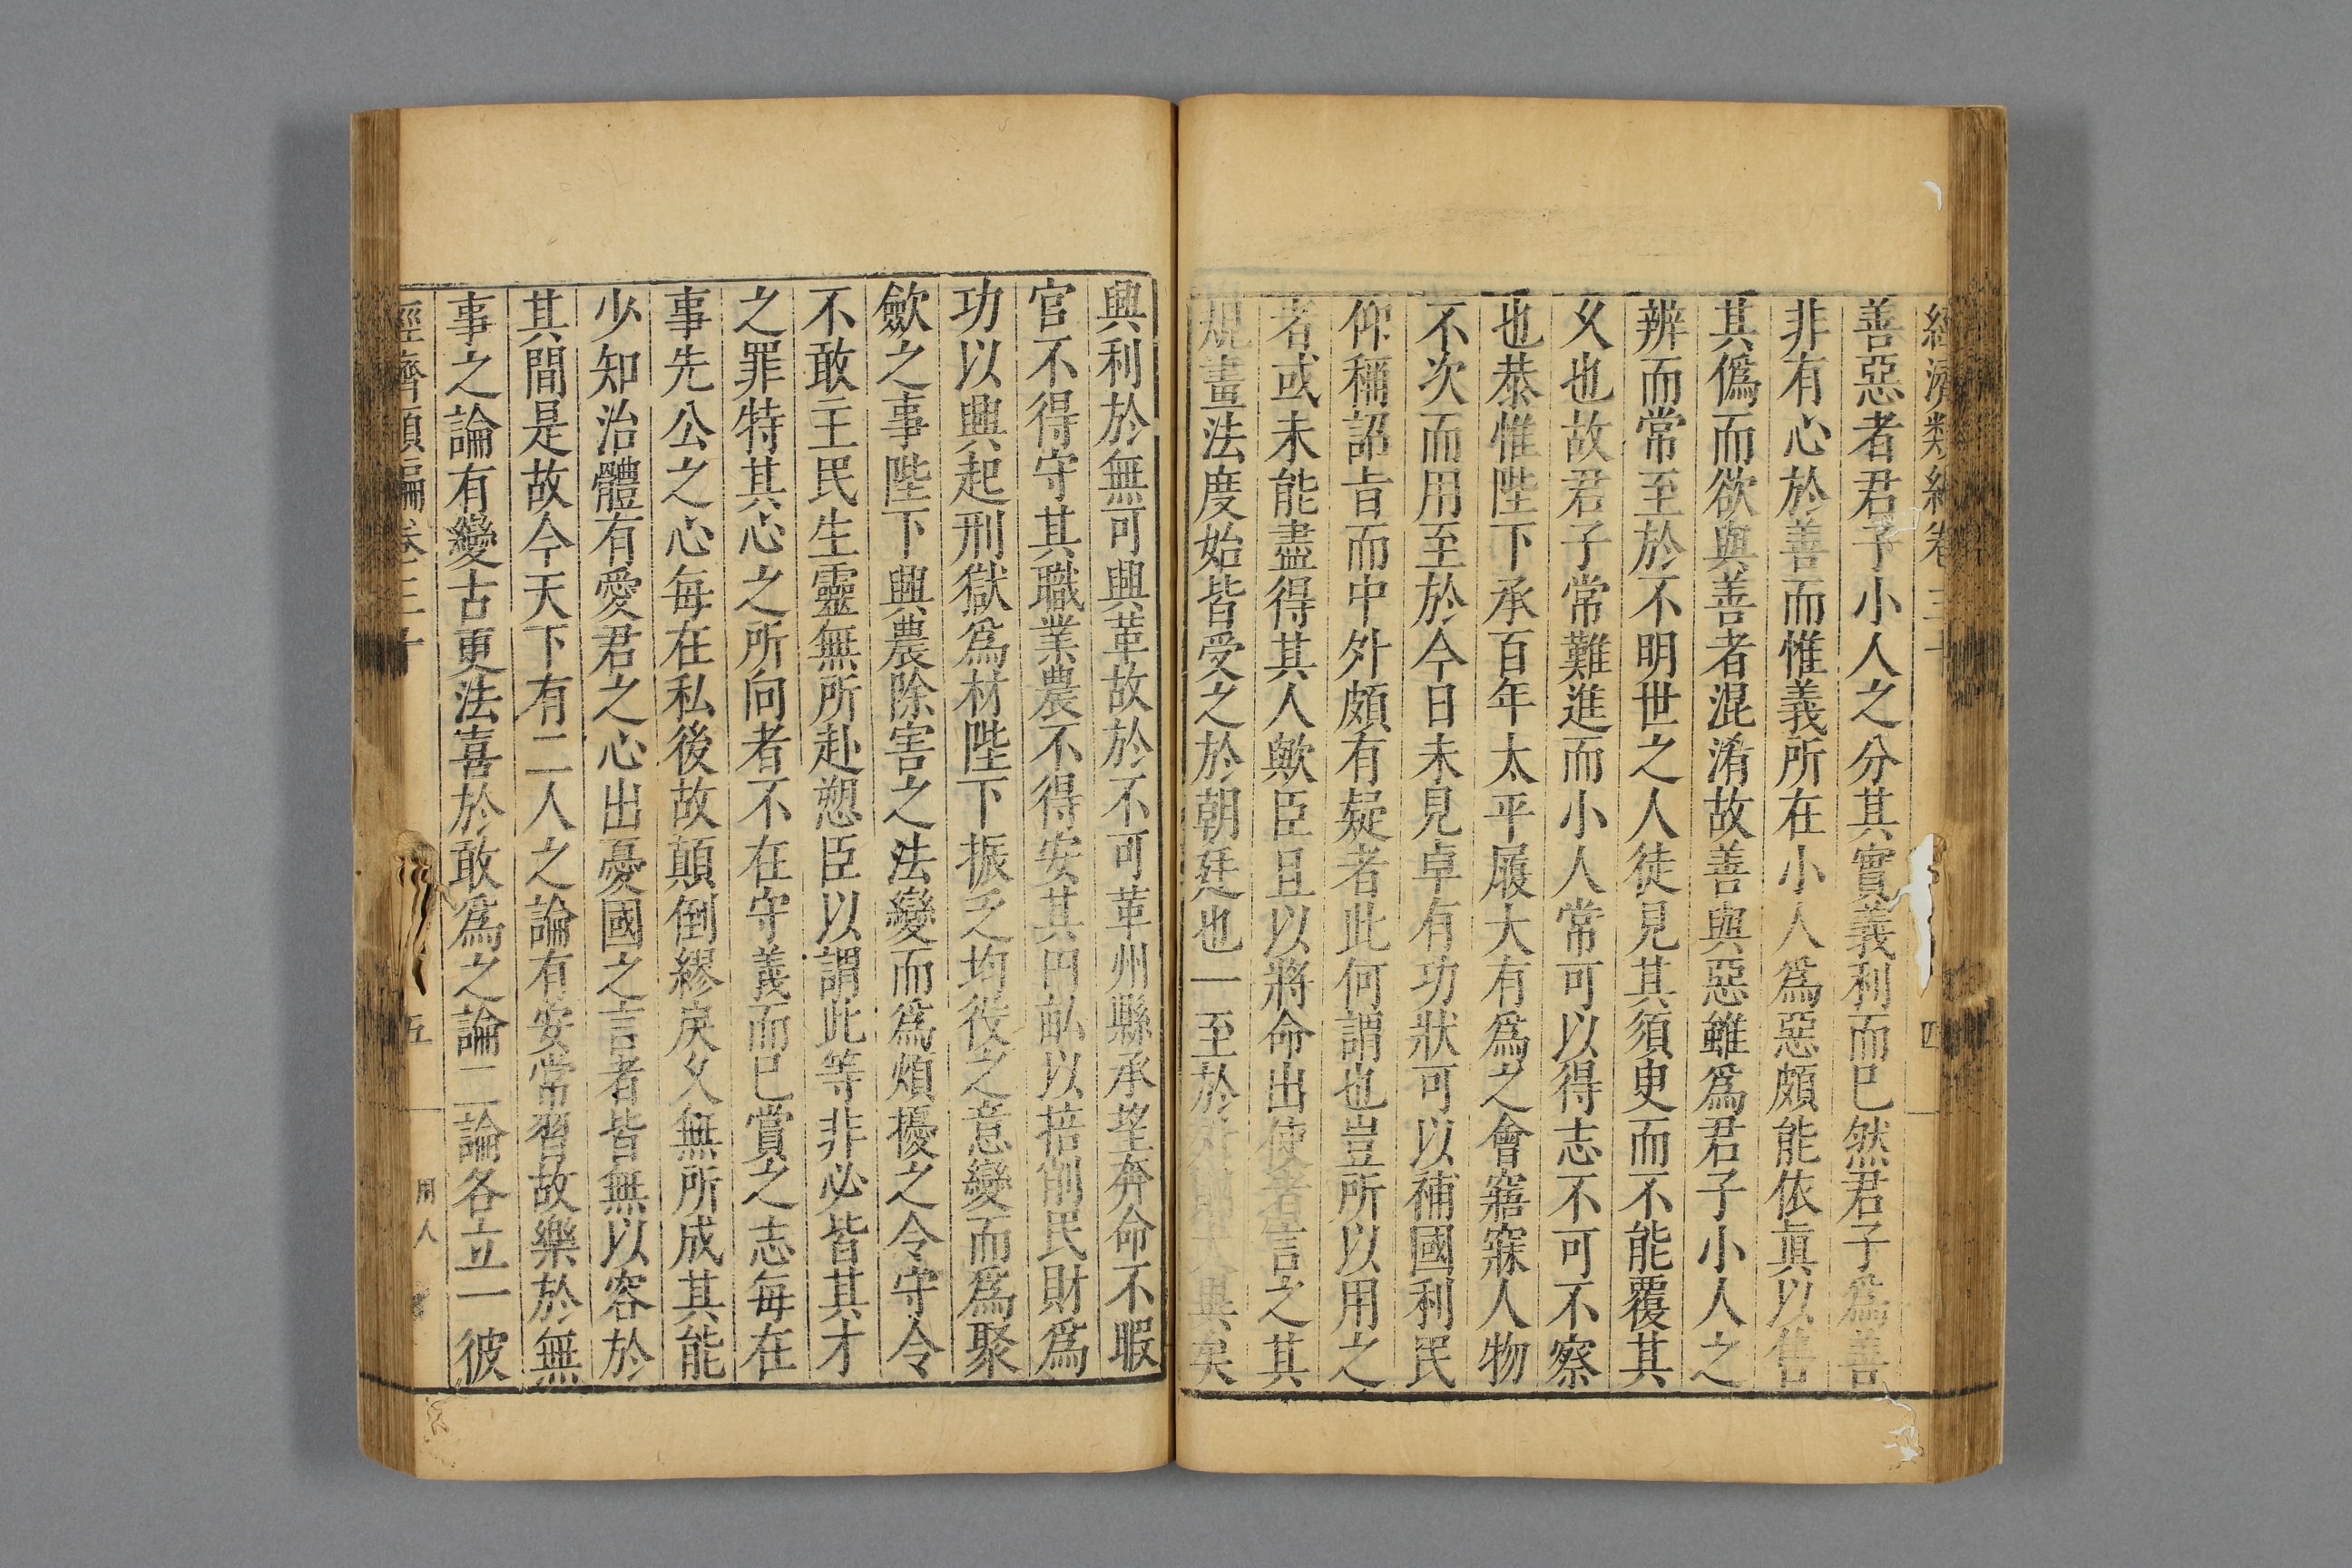 經濟類編卷三十
四
善惡者君子小人之分其實義利而已然君子爲善
非有心於善而惟義所在小人爲惡頗能依真以售
其僞而欲與善者混淆故善與惡雖爲君子小人之
辨而常至於不明世之人徒見其須臾而不能覆其
久也故君子常難進而小人常可以得志不可不察
也恭惟陛下承百年太平履大有爲之會寤寐人物
不次而用至於今日未見卓有功狀可以補國利民
仰稱詔旨而中外頗有疑者此何謂也豈所以用之
者或未能盡得其人歟臣且以將命出使者言之其
規畫法度始皆受之於朝廷也一至於 與矣
興利於無可興革故於不可革州縣承望奔命不暇
官不得守其職業農不得安其田畝以掊削民財爲
功以興起刑獄爲材陛下振乏均役之意變而爲聚
歛之事陛下興農除害之法變而爲煩擾之令守令
不敢主民生靈無所赴愬臣以謂此等非必皆其才
之罪特其心之所向者不在守義而已賞之志每在
事先公之心每在私後故顛倒繆戾久無所成其能
少知治體有愛君之心出憂國之言者皆無以容於
其間是故今天下有二人之論有安常習故樂於無
事之論有變古更法喜於敢爲之論二論各立一彼
經濟類編卷三十
五
用人